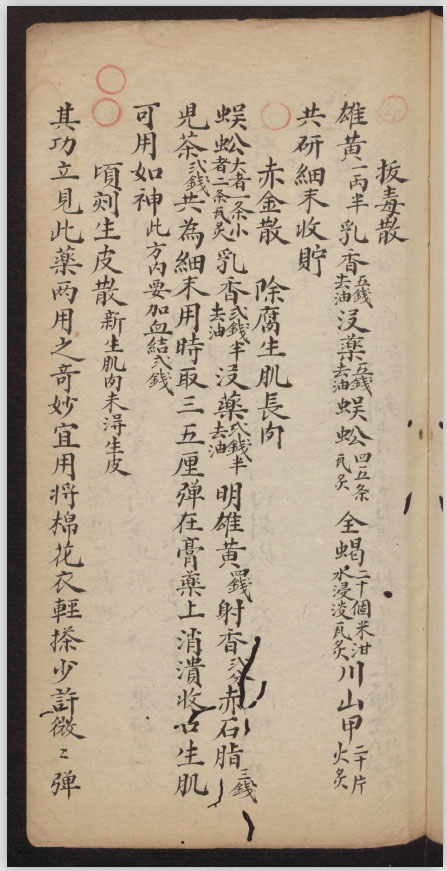 拔毒散
雄黃一両半乳香五錢去油沒藥一五錢去油蜈蚣四五条瓦炙全蝎二十個米泔水浸淡瓦炙川山甲二十片火炙
共研細末收貯
赤金散 除腐生肌長肉
蜈公虫大者一条小者二条瓦炙乳香弍錢半去油沒藥弍錢半去油明雄黃四錢射香弍分赤石脂三錢
児茶弍錢共為細末用時取三五厘弹在膏藥上消潰收口生肌
可用如神此方内要加血結弍錢
頃刻生皮散新生肌肉未淂生皮
其功立見此藥両用之奇妙宜用将棉花衣輕搽少許微〻弹